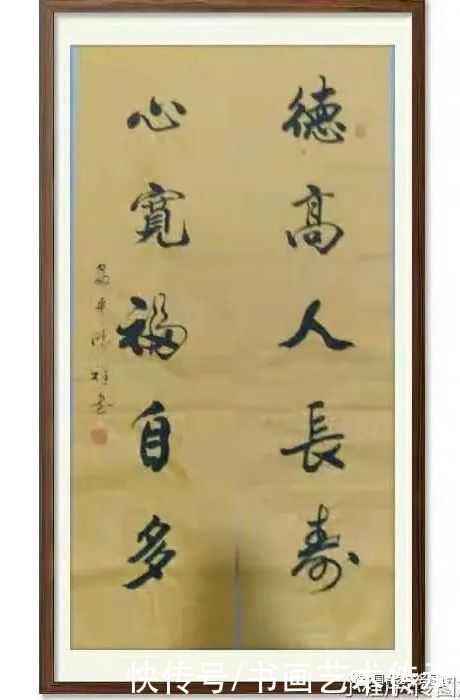 德高人長寿
心寬福自多
快传号/书画艺术传承